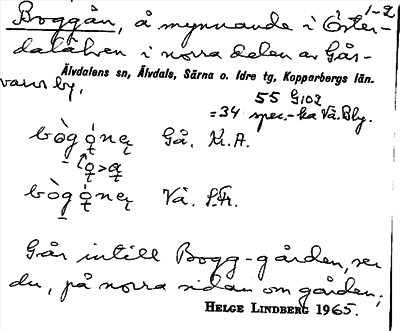 1-2
Boggån, å mynnande i Öster-
dalälven i norra delen av Gås-
varvs by,
Älvdalens sn, Älvdals, Särna o. Idre tg, Kopparbergs län.
55 G102
=34 spec.-ka Vä. Bby.
Gå. K.A.
Vä.
Går intill Bogg-gården, ser
du, på norra sidan om gården;
HELGE LINDBERG 1965.